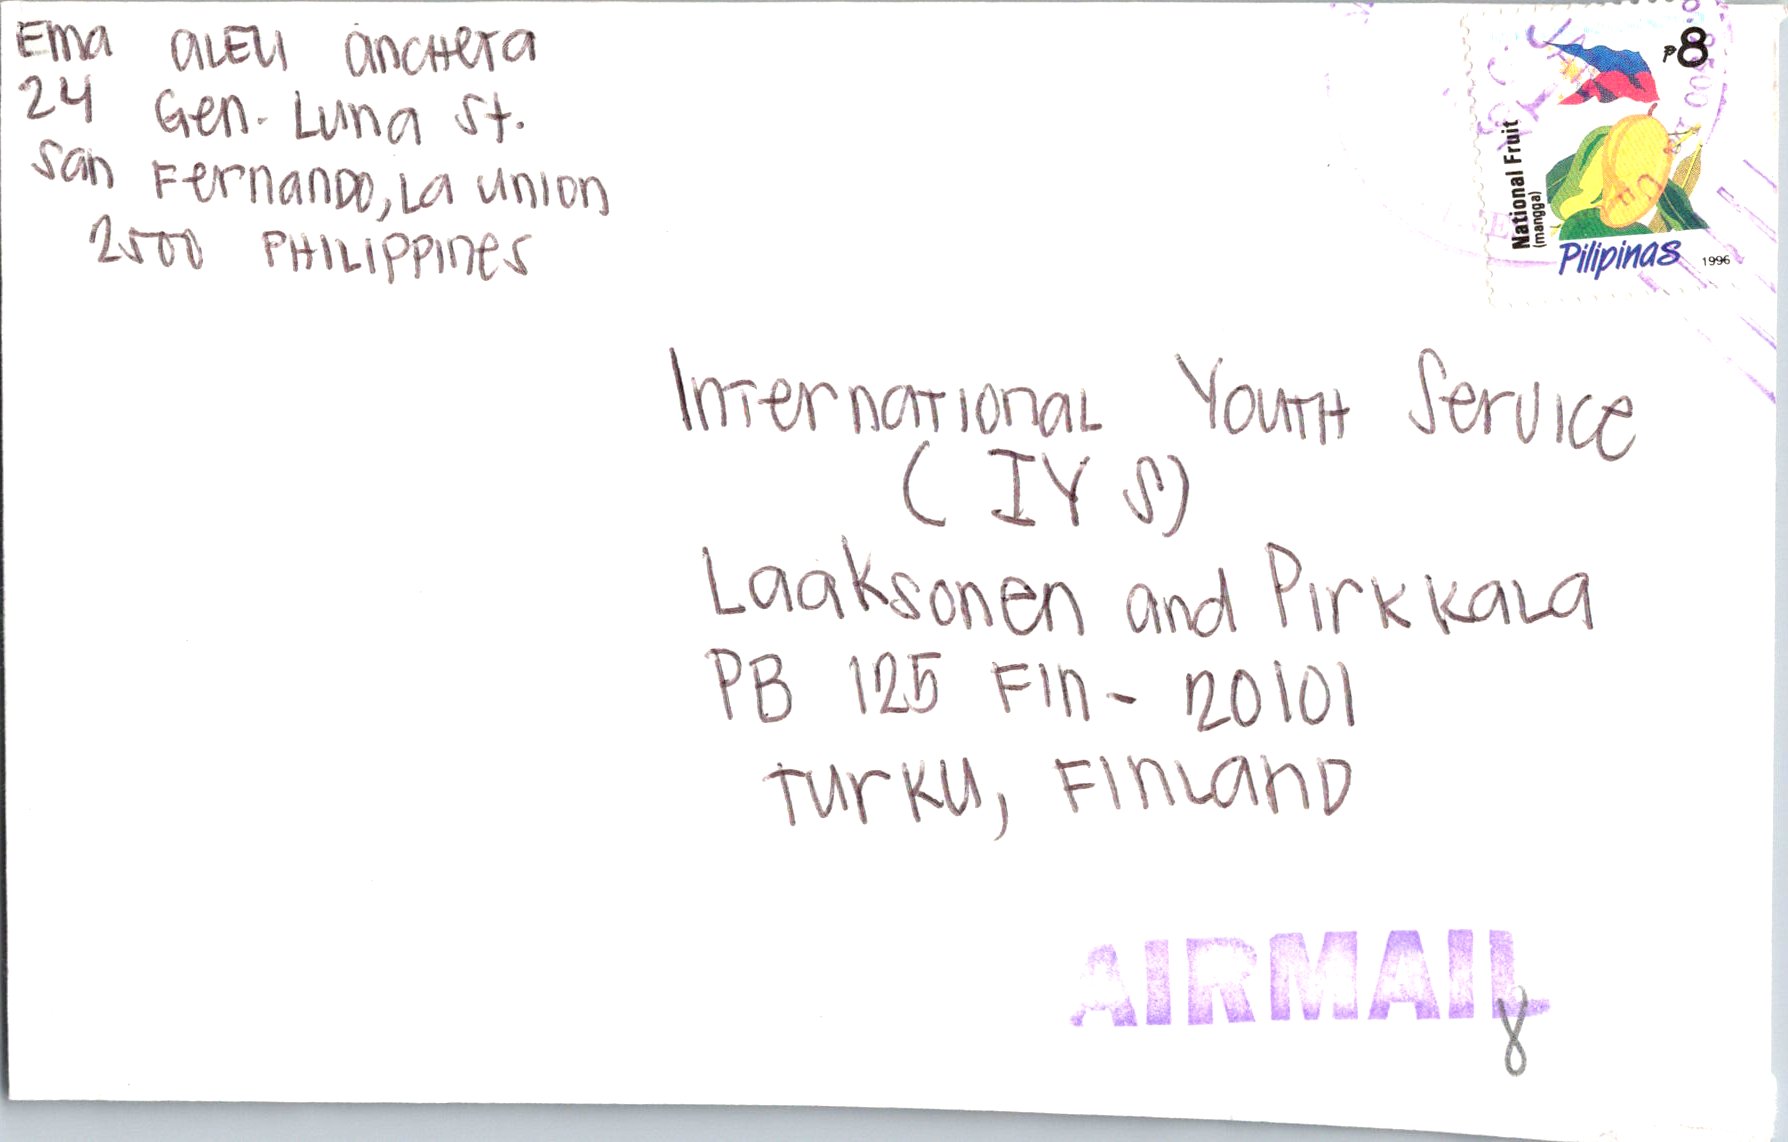 Ema Aleu Ancheta
24 Gen. Luna St.
San Fernando, La Union
2500 Philippines
₱8
National Fruit
(mangga)
Pilipinas 1996
International Youth Service
(IYS)
Laaksonen and Pirkkala
PB 125 Fin - 20101
Turku, Finland
AIRMAIL
8